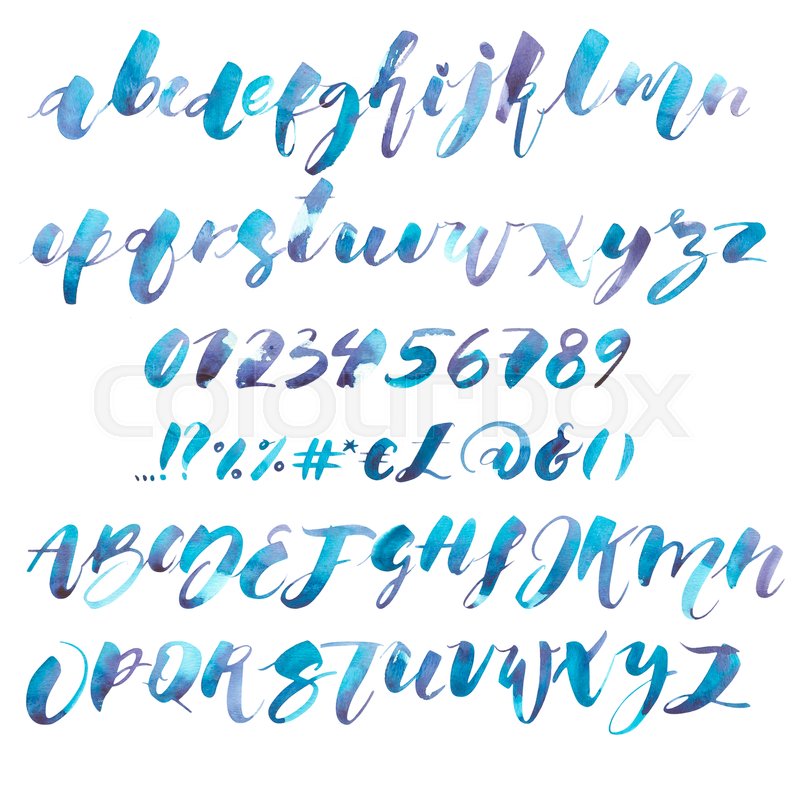 abcdefghijklmn
opqrstuvwxyzz
0123456789
...!?%%#*€£@&()
ABCDEFGHIJKMN
OPQRSTUVWXYZ
colourbox